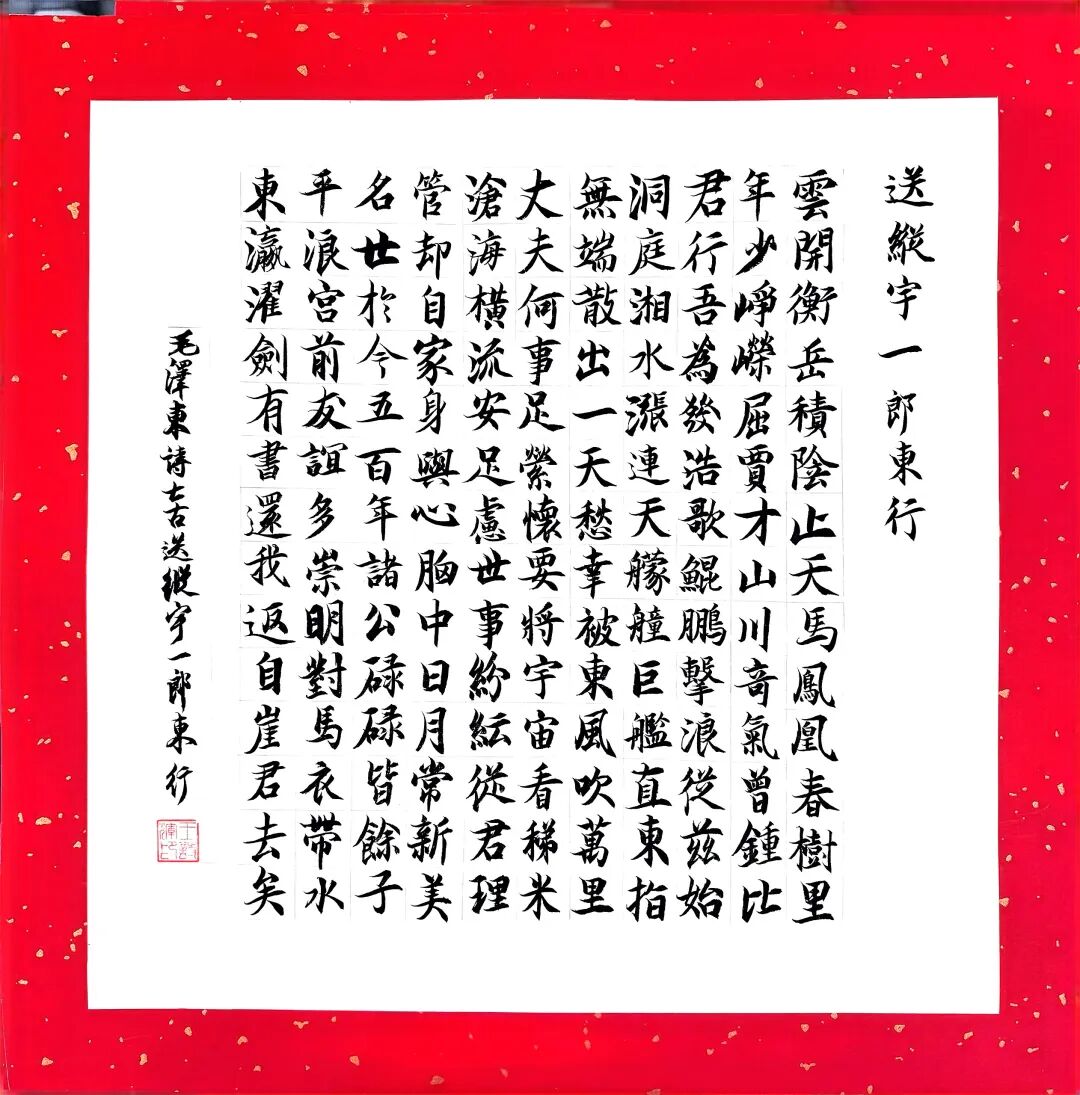 送縱宇一郎東行
雲開衡岳積陰止天馬鳳凰春樹里
年少崢嶸屈賈才山川奇氣曾鍾比
君行吾為發浩歌鯤鵬擊浪從茲始
洞庭湘水漲連天艨艟巨艦直東指
無端散出一天愁幸被東風吹萬里
丈夫何事足縈懷要將宇宙看稊米
滄海橫流安足慮世事紛紜從君理
管却自家身與心胸中日月常新美
名世於今五百年諸公碌碌皆餘子
平浪宮前友誼多崇明對馬衣帶水
東瀛濯劍有書還我返自崖君去矣
毛澤東詩七古送縱宇一郎東行